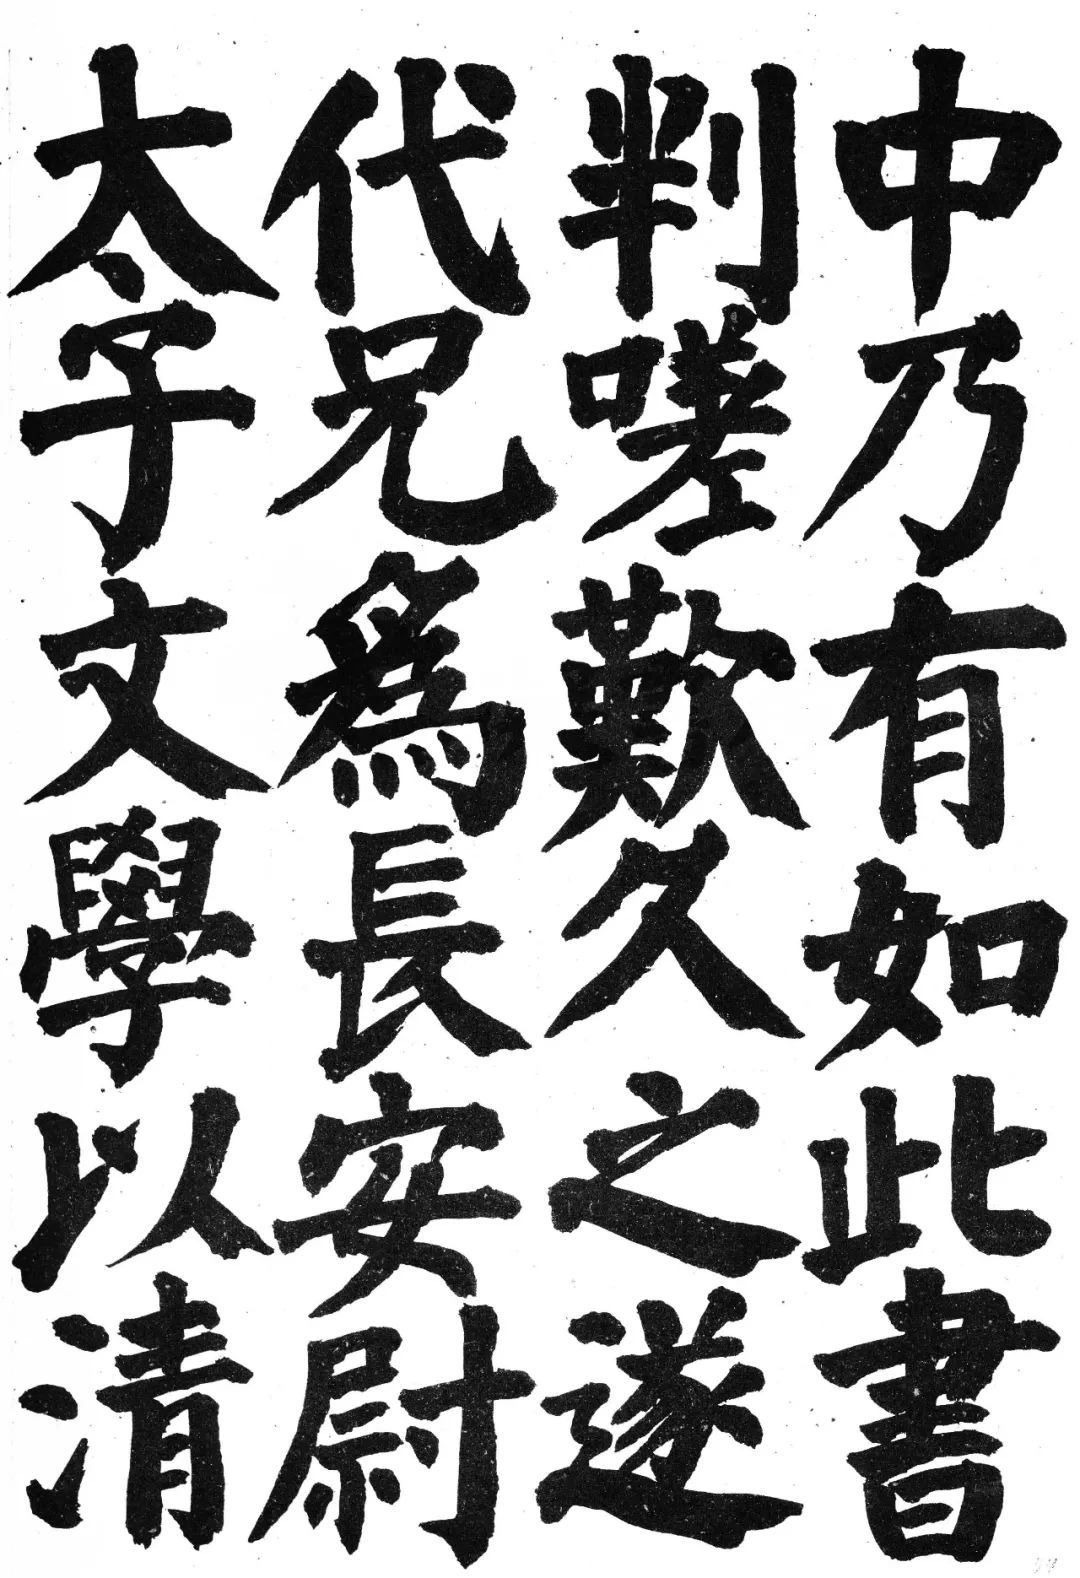 中乃有如此書
判嗟歎久之遂
代兄爲長安尉
太子文學以清